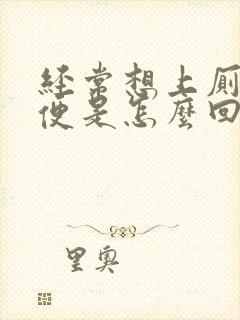 经常想上厕
便是怎麼回
里奥